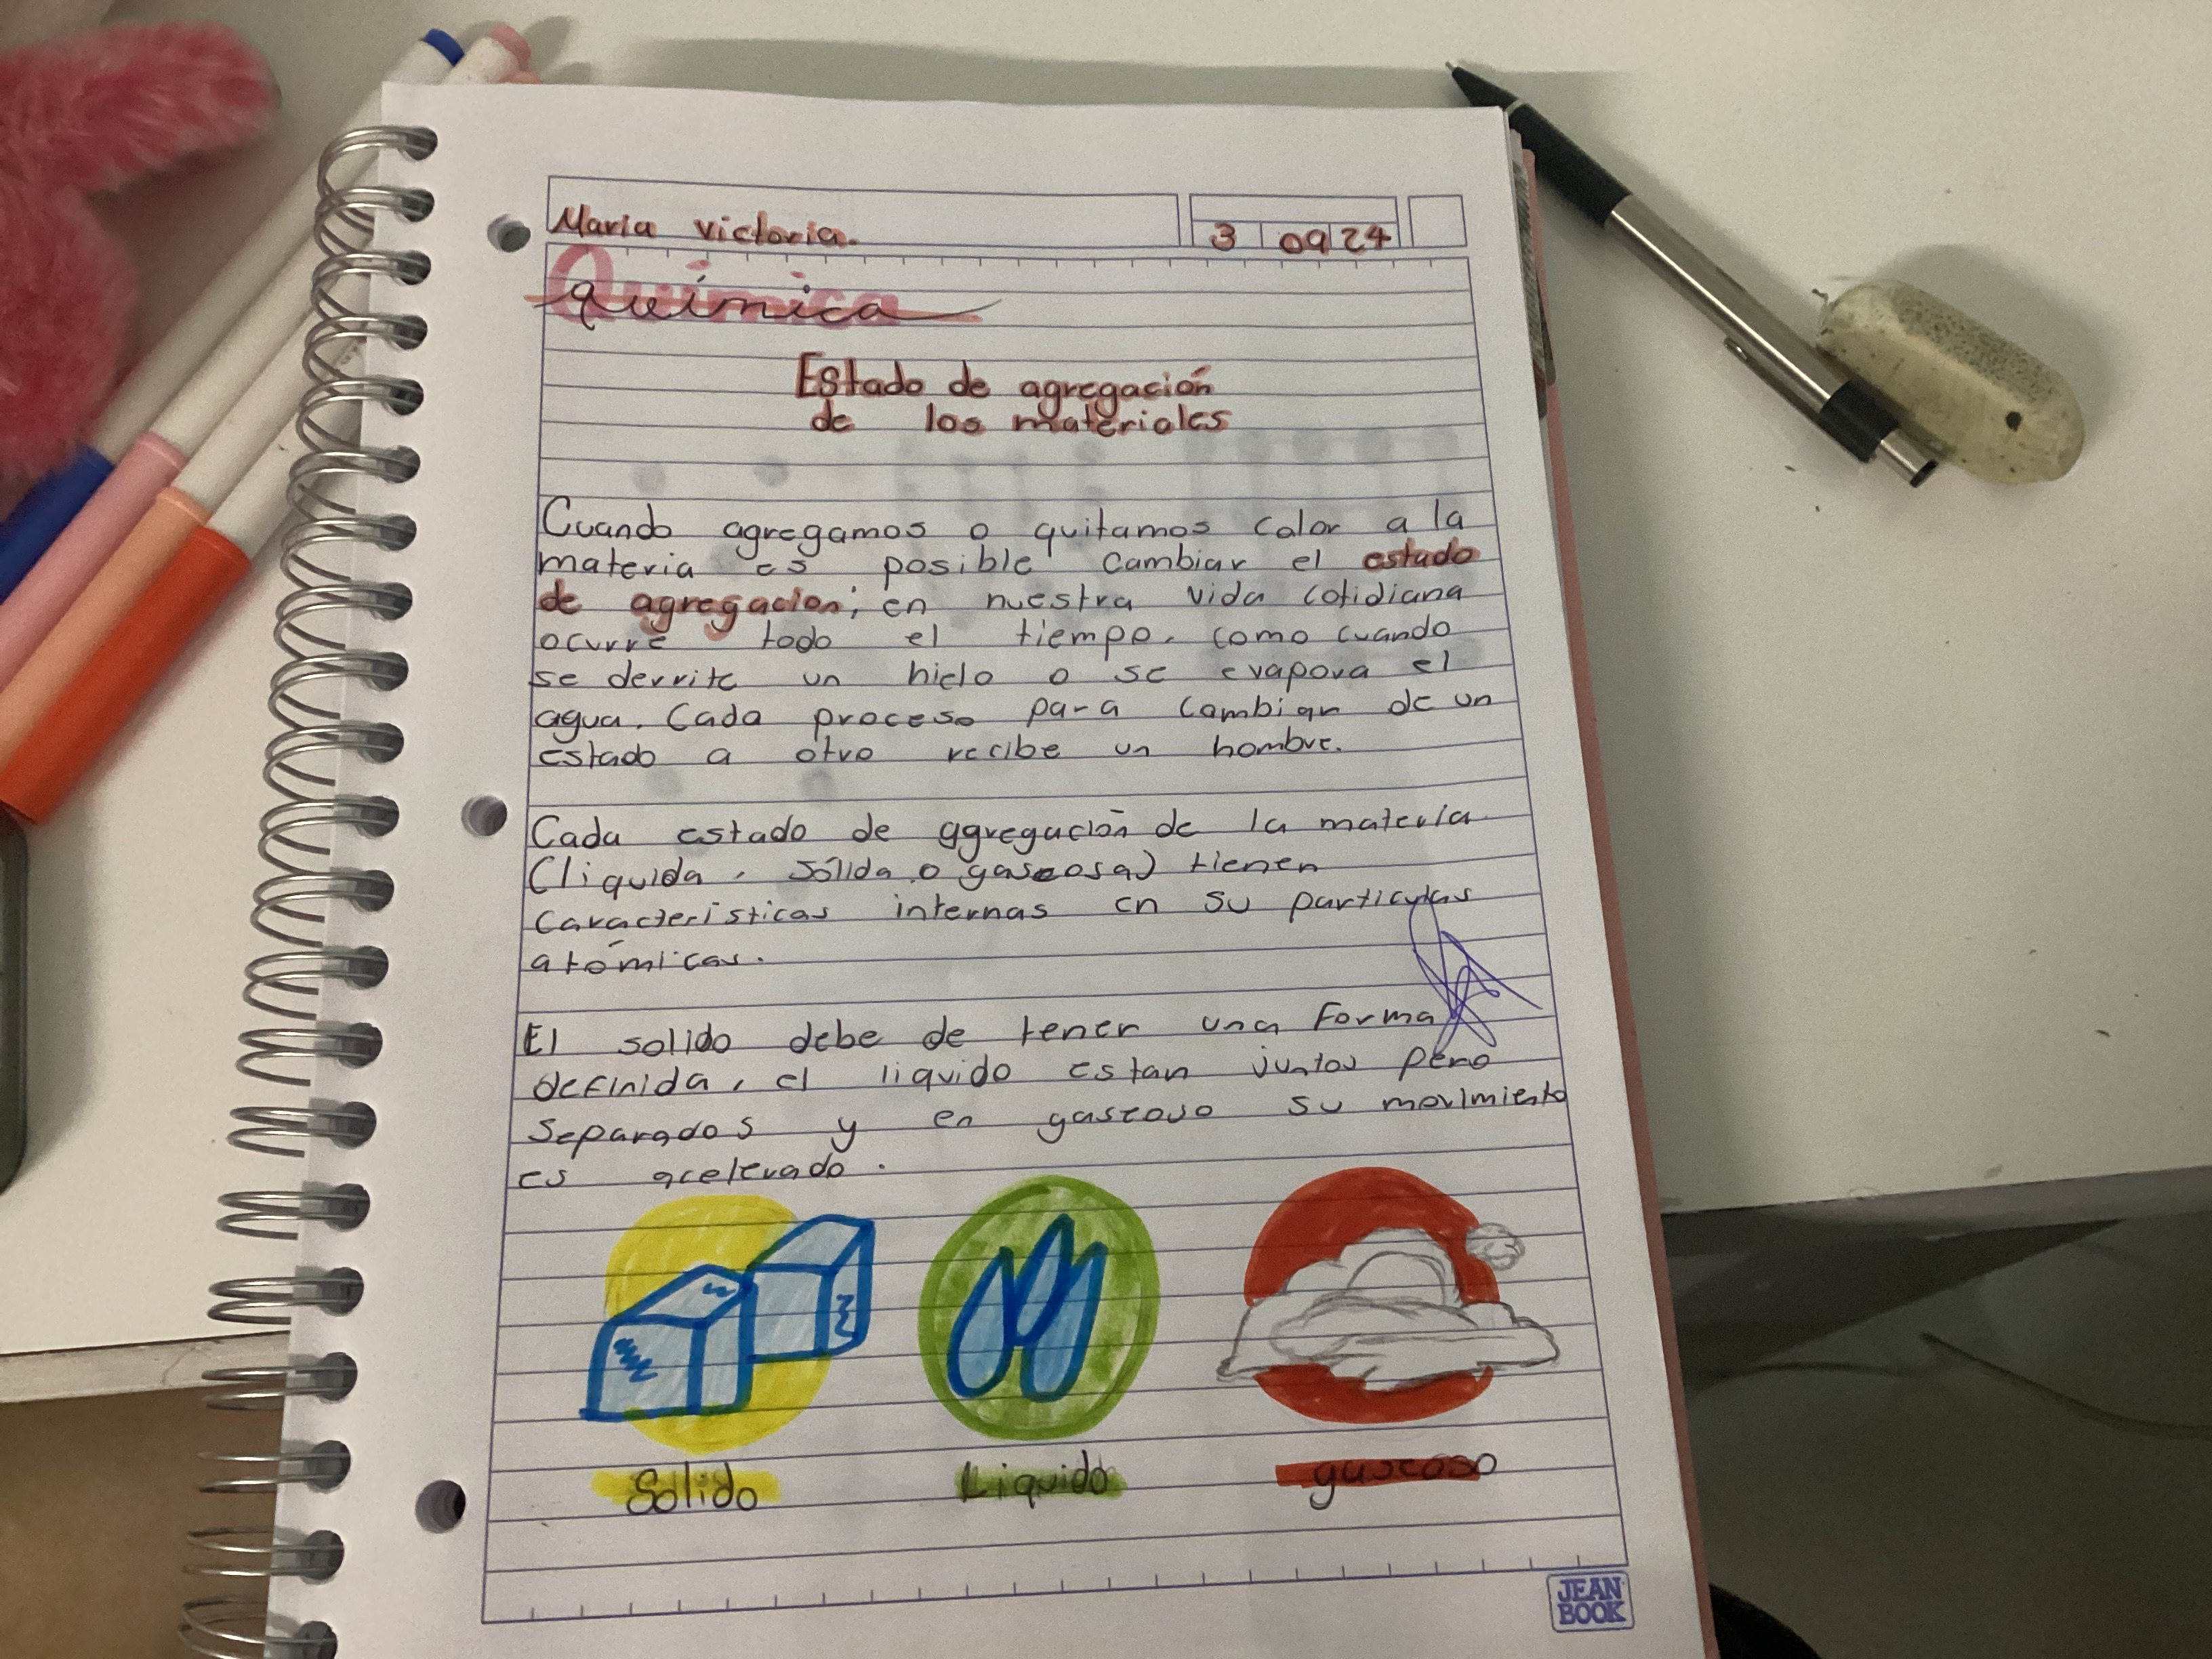 Maria victoria.
3 09 24
Química
Estado de agregación
de los materiales
Cuando agregamos o quitamos calor a la
materia es posible cambiar el estado
de agregacion; en nuestra vida cotidiana
ocurre todo el tiempo, como cuando
se derrite un hielo o se evapora el
agua. Cada proceso para cambiar de un
estado a otro recibe un nombre.
Cada estado de agregación de la materia
(liquida, sólida o gaseosa) tienen
caracteristicas internas en su particulas
atómicas.
El solido debe de tener una forma
definida, el liquido estan juntos pero
separados y en gaseoso su movimiento
es acelerado.
Sólido Liquido gaseoso
JEAN
BOOK